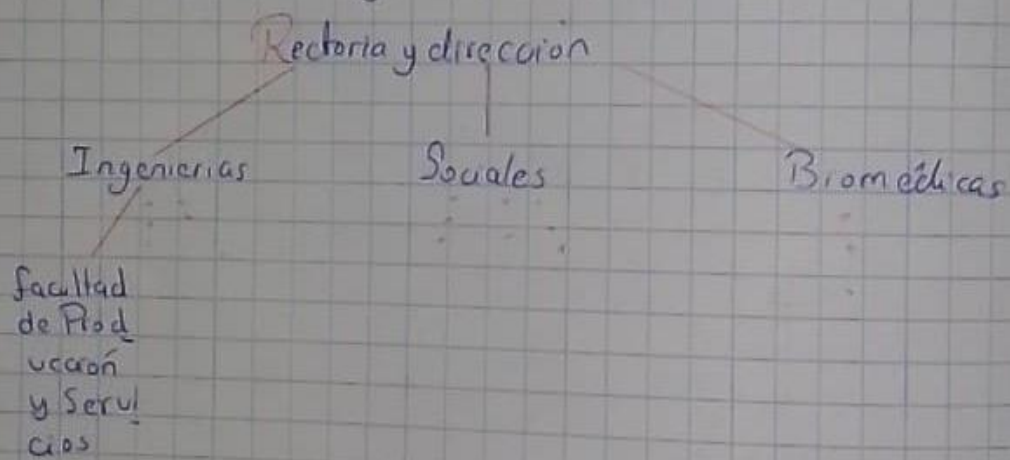 Rectoria y dirección
Ingenierias Sociales Biomédicas
facultad
de Prod
ucción
y Servi
cios